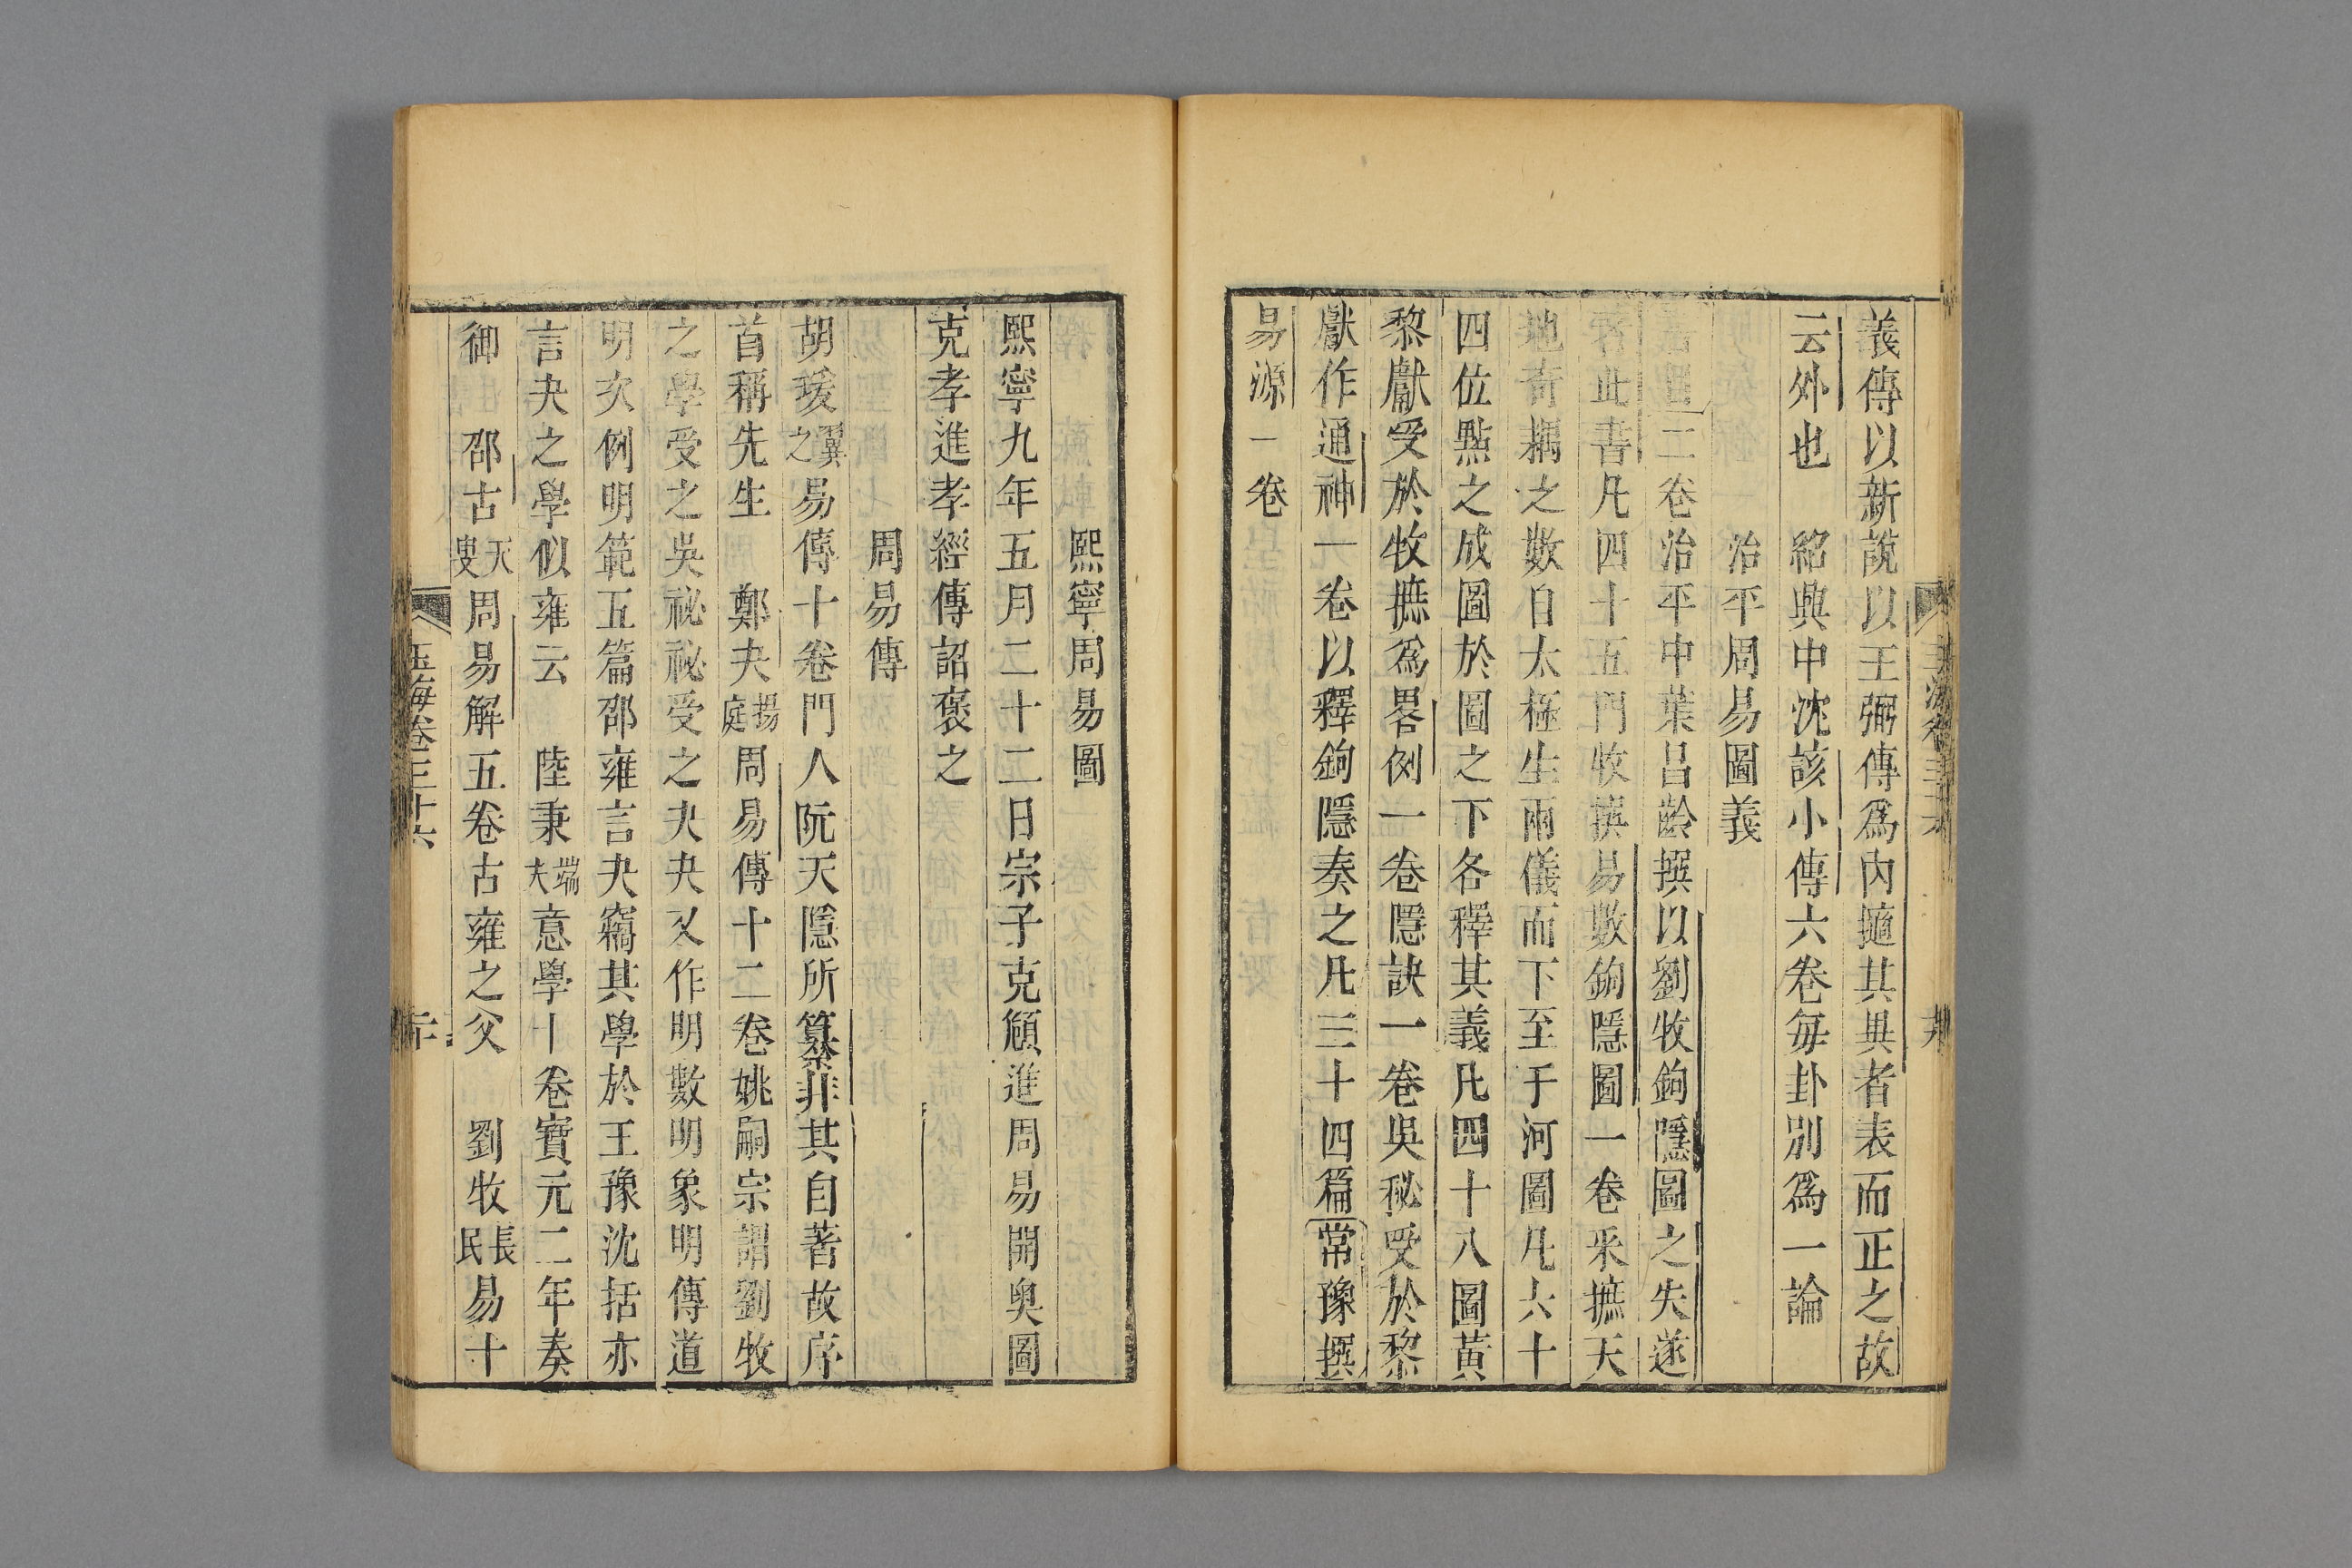 義傳以新說以王弼傳爲內摭其異者表而正之故
云外也　紹興中沈該小傳六卷每卦別爲一論
治平周易圖義
書目二卷治平中葉昌齡撰以劉牧鉤隱圖之失遂
著此書凡四十五門牧撰易數鉤隱圖一卷釆摭天
地奇耦之數自太極生兩儀而下至于河圖凡六十
四位點之成圖於圖之下各釋其義凡四十八圖黃
黎獻受於牧摭爲畧例一卷隱訣一卷吳秘受於黎
獻作通神一卷以釋鉤隱奏之凡三十四篇常豫撰
易源一卷
熙寧周易圖
熙寧九年五月二十二日宗子克頎進周易開奥圖
克孝進孝經傳詔褒之
周易傳
胡瑗翼之易傳十卷門人阮天隱所纂非其自著故序
首稱先生　鄭夬揚庭周易傳十二卷姚嗣宗謂劉牧
之學受之吳祕祕受之夬夬又作明數明象明傳道
明次例明範五篇邵雍言夬竊其學於王豫沈括亦
言夬之學似雍云　陸秉端夫意學十卷寶元二年奏
御　邵古天叟周易解五卷古雍之父　劉牧長民易十
玉海卷三十六
二十